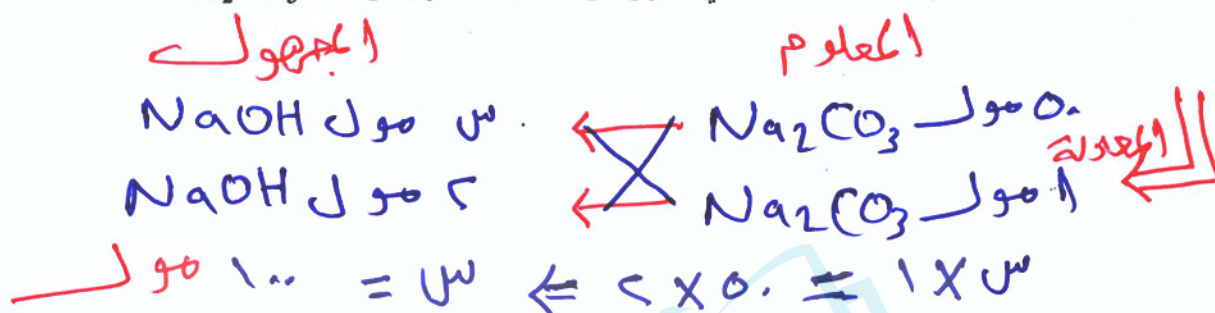 المعلوم المجهول
٥٠ مول Na2CO3 س مول NaOH
المعادلة
١ مول Na2CO3 ٢ مول NaOH
س × ١ = ٥٠ × ٢ ⇐ س = ١٠٠ مول